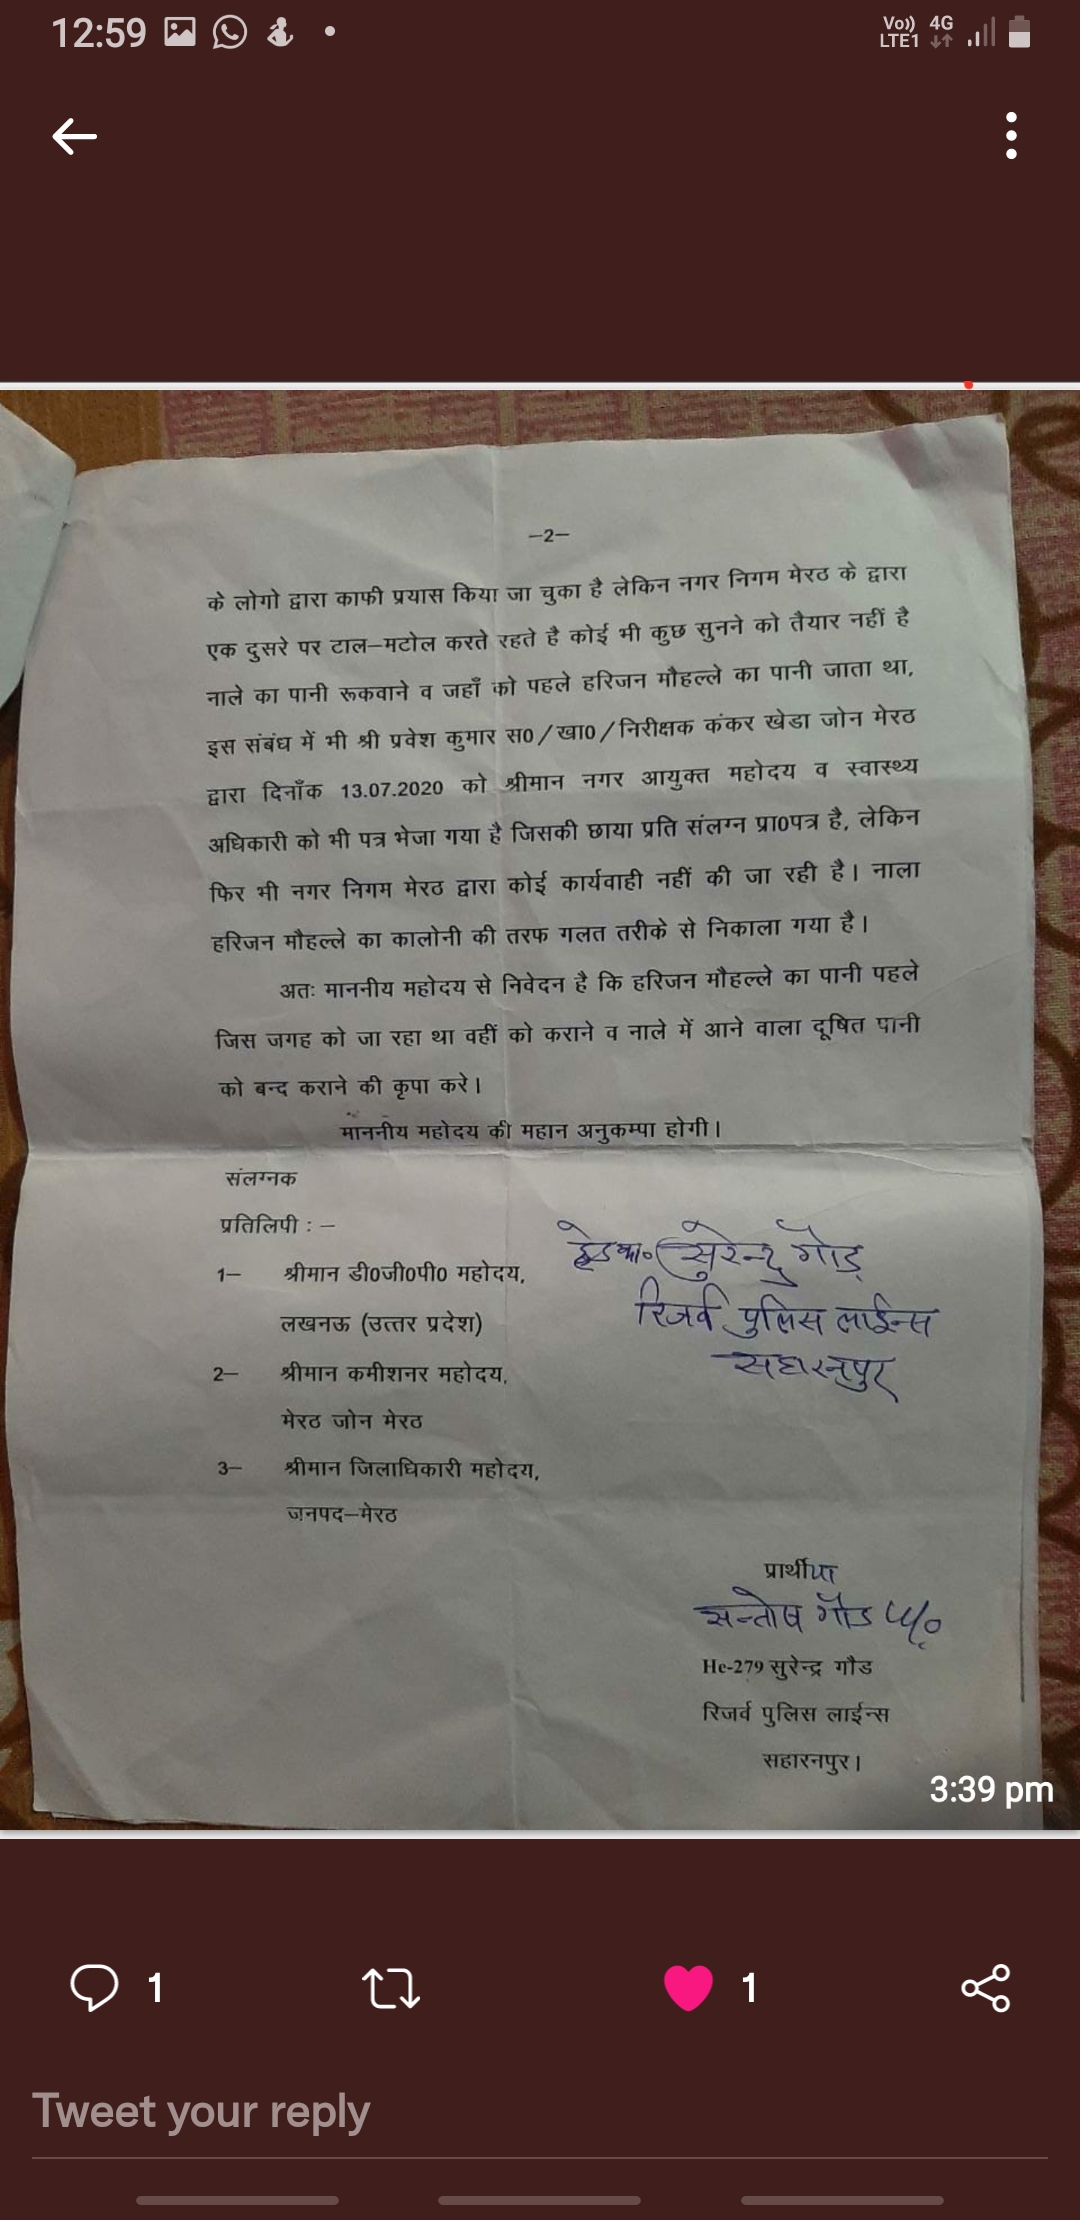 12:59
Vo)) 4G
LTE1
–2–
के लोगो द्वारा काफी प्रयास किया जा चुका है लेकिन नगर निगम मेरठ के द्वारा
एक दुसरे पर टाल–मटोल करते रहते है कोई भी कुछ सुनने को तैयार नहीं है
नाले का पानी रूकवाने व जहाँ को पहले हरिजन मौहल्ले का पानी जाता था,
इस संबंध में भी श्री प्रवेश कुमार स0/खा0/निरीक्षक कंकर खेडा जोन मेरठ
द्वारा दिनाँक 13.07.2020 को श्रीमान नगर आयुक्त महोदय व स्वास्थ्य
अधिकारी को भी पत्र भेजा गया है जिसकी छाया प्रति संलग्न प्रा0पत्र है, लेकिन
फिर भी नगर निगम मेरठ द्वारा कोई कार्यवाही नहीं की जा रही है। नाला
हरिजन मौहल्ले का कालोनी की तरफ गलत तरीके से निकाला गया है।
अतः माननीय महोदय से निवेदन है कि हरिजन मौहल्ले का पानी पहले
जिस जगह को जा रहा था वहीं को कराने व नाले में आने वाला दूषित पानी
को बन्द कराने की कृपा करे।
माननीय महोदय की महान अनुकम्पा होगी।
संलग्नक
प्रतिलिपी : –
हेड का० सुरेन्द्र गौड़
1– श्रीमान डी0जी0पी0 महोदय,
रिजर्व पुलिस लाईन्स
लखनऊ (उत्तर प्रदेश)
सहारनपुर
2– श्रीमान कमीशनर महोदय,
मेरठ जोन मेरठ
3– श्रीमान जिलाधिकारी महोदय,
जनपद–मेरठ
प्रार्थीया
सन्तोष गौड W/o
He-279 सुरेन्द्र गौड
रिजर्व पुलिस लाईन्स
सहारनपुर।
3:39 pm
1 1
Tweet your reply